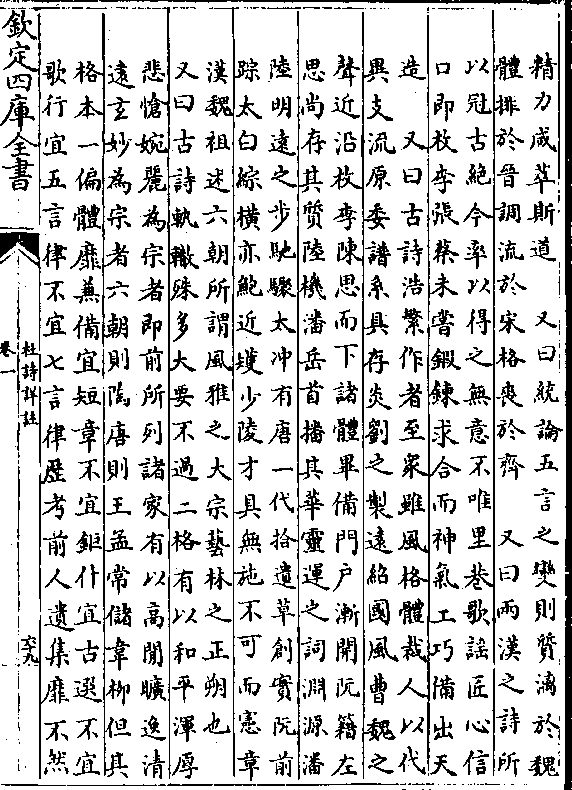 精力咸萃斯道　又曰統論五言之變則質漓於魏
體排於晉調流於宋格喪於齊　又曰兩漢之詩所
以冠古絕今率以得之無意不唯里巷歌謡匠心信
口即枚李張蔡未嘗鍜鍊求合而神氣工巧備出天
造　又曰古詩浩繁作者至衆雖風格體裁人以代
異支流原委譜系具存炎劉之製遠紹國風曹魏之
聲近沿枚李陳思而下諸體畢備門戸漸開阮籍左
思尚存其質陸機潘岳首播其華靈運之詞淵源潘
陸明遠之步馳驟太冲有唐一代拾遺草創實阮前
踪太白綜橫亦鮑近矱少陵才具無施不可而憲章
漢魏祖述六朝所謂風雅之大宗藝林之正朔也
又曰古詩軌轍殊多大要不過二格有以和平渾厚
悲愴婉麗為宗者即前所列諸家有以高閒曠逸清
遠玄妙為宗者六朝則陶唐則王孟常儲韋柳但其
格本一偏體靡兼備宜短章不宜鉅什宜古選不宜
歌行宜五言律不宜七言律歴考前人遺集靡不然
欽定四庫全書
杜詩詳註
卷一
六十九